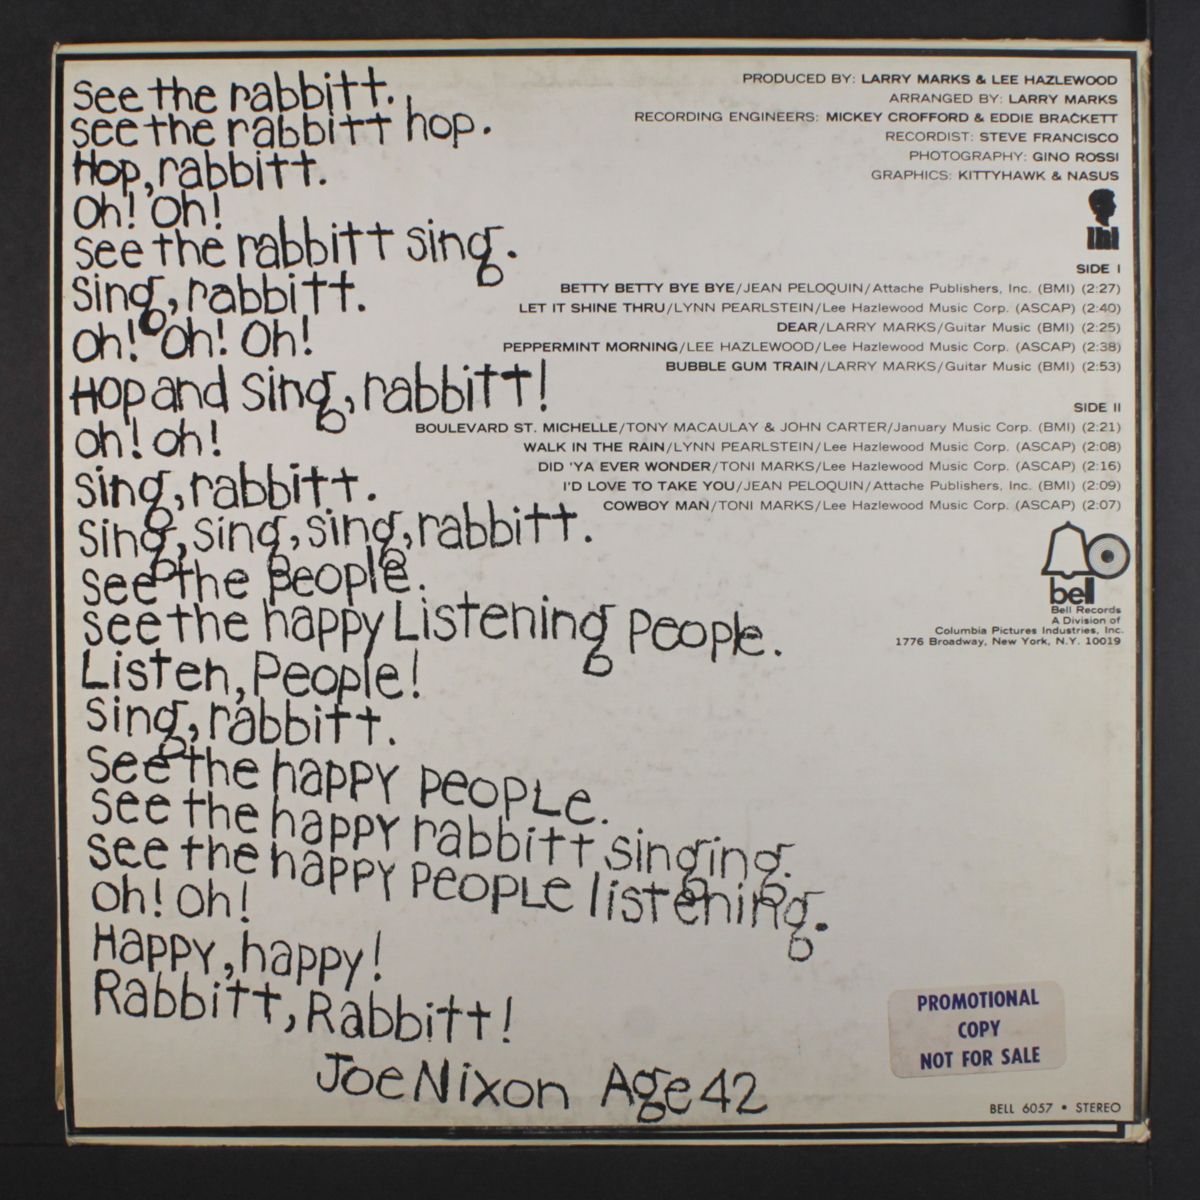 see the rabbitt.
see the rabbitt hop.
Hop, rabbitt.
oh! oh!
see the rabbitt sing.
sing, rabbitt.
oh! oh! Oh!
Hop and sing, rabbitt!
oh! oh!
sing, rabbitt.
sing, sing, sing, rabbitt.
see the people.
see the happy Listening People.
Listen, People!
sing, rabbitt.
see the happy people.
see the happy rabbitt singing.
see the happy people listening.
oh! oh!
Happy, happy!
Rabbitt, Rabbitt!
Joe Nixon Age 42
PRODUCED BY: LARRY MARKS & LEE HAZLEWOOD
ARRANGED BY: LARRY MARKS
RECORDING ENGINEERS: MICKEY CROFFORD & EDDIE BRACKETT
RECORDIST: STEVE FRANCISCO
PHOTOGRAPHY: GINO ROSSI
GRAPHICS: KITTYHAWK & NASUS
lhi
SIDE I
BETTY BETTY BYE BYE/JEAN PELOQUIN/Attache Publishers, Inc. (BMI) (2:27)
LET IT SHINE THRU/LYNN PEARLSTEIN/Lee Hazlewood Music Corp. (ASCAP) (2:40)
DEAR/LARRY MARKS/Guitar Music (BMI) (2:25)
PEPPERMINT MORNING/LEE HAZLEWOOD/Lee Hazlewood Music Corp. (ASCAP) (2:38)
BUBBLE GUM TRAIN/LARRY MARKS/Guitar Music (BMI) (2:53)
SIDE II
BOULEVARD ST. MICHELLE/TONY MACAULAY & JOHN CARTER/January Music Corp. (BMI) (2:21)
WALK IN THE RAIN/LYNN PEARLSTEIN/Lee Hazlewood Music Corp. (ASCAP) (2:08)
DID 'YA EVER WONDER/TONI MARKS/Lee Hazlewood Music Corp. (ASCAP) (2:16)
I'D LOVE TO TAKE YOU/JEAN PELOQUIN/Attache Publishers, Inc. (BMI) (2:09)
COWBOY MAN/TONI MARKS/Lee Hazlewood Music Corp. (ASCAP) (2:07)
bell
Bell Records
A Division of
Columbia Pictures Industries, Inc.
1776 Broadway, New York, N.Y. 10019
PROMOTIONAL
COPY
NOT FOR SALE
BELL 6057 • STEREO